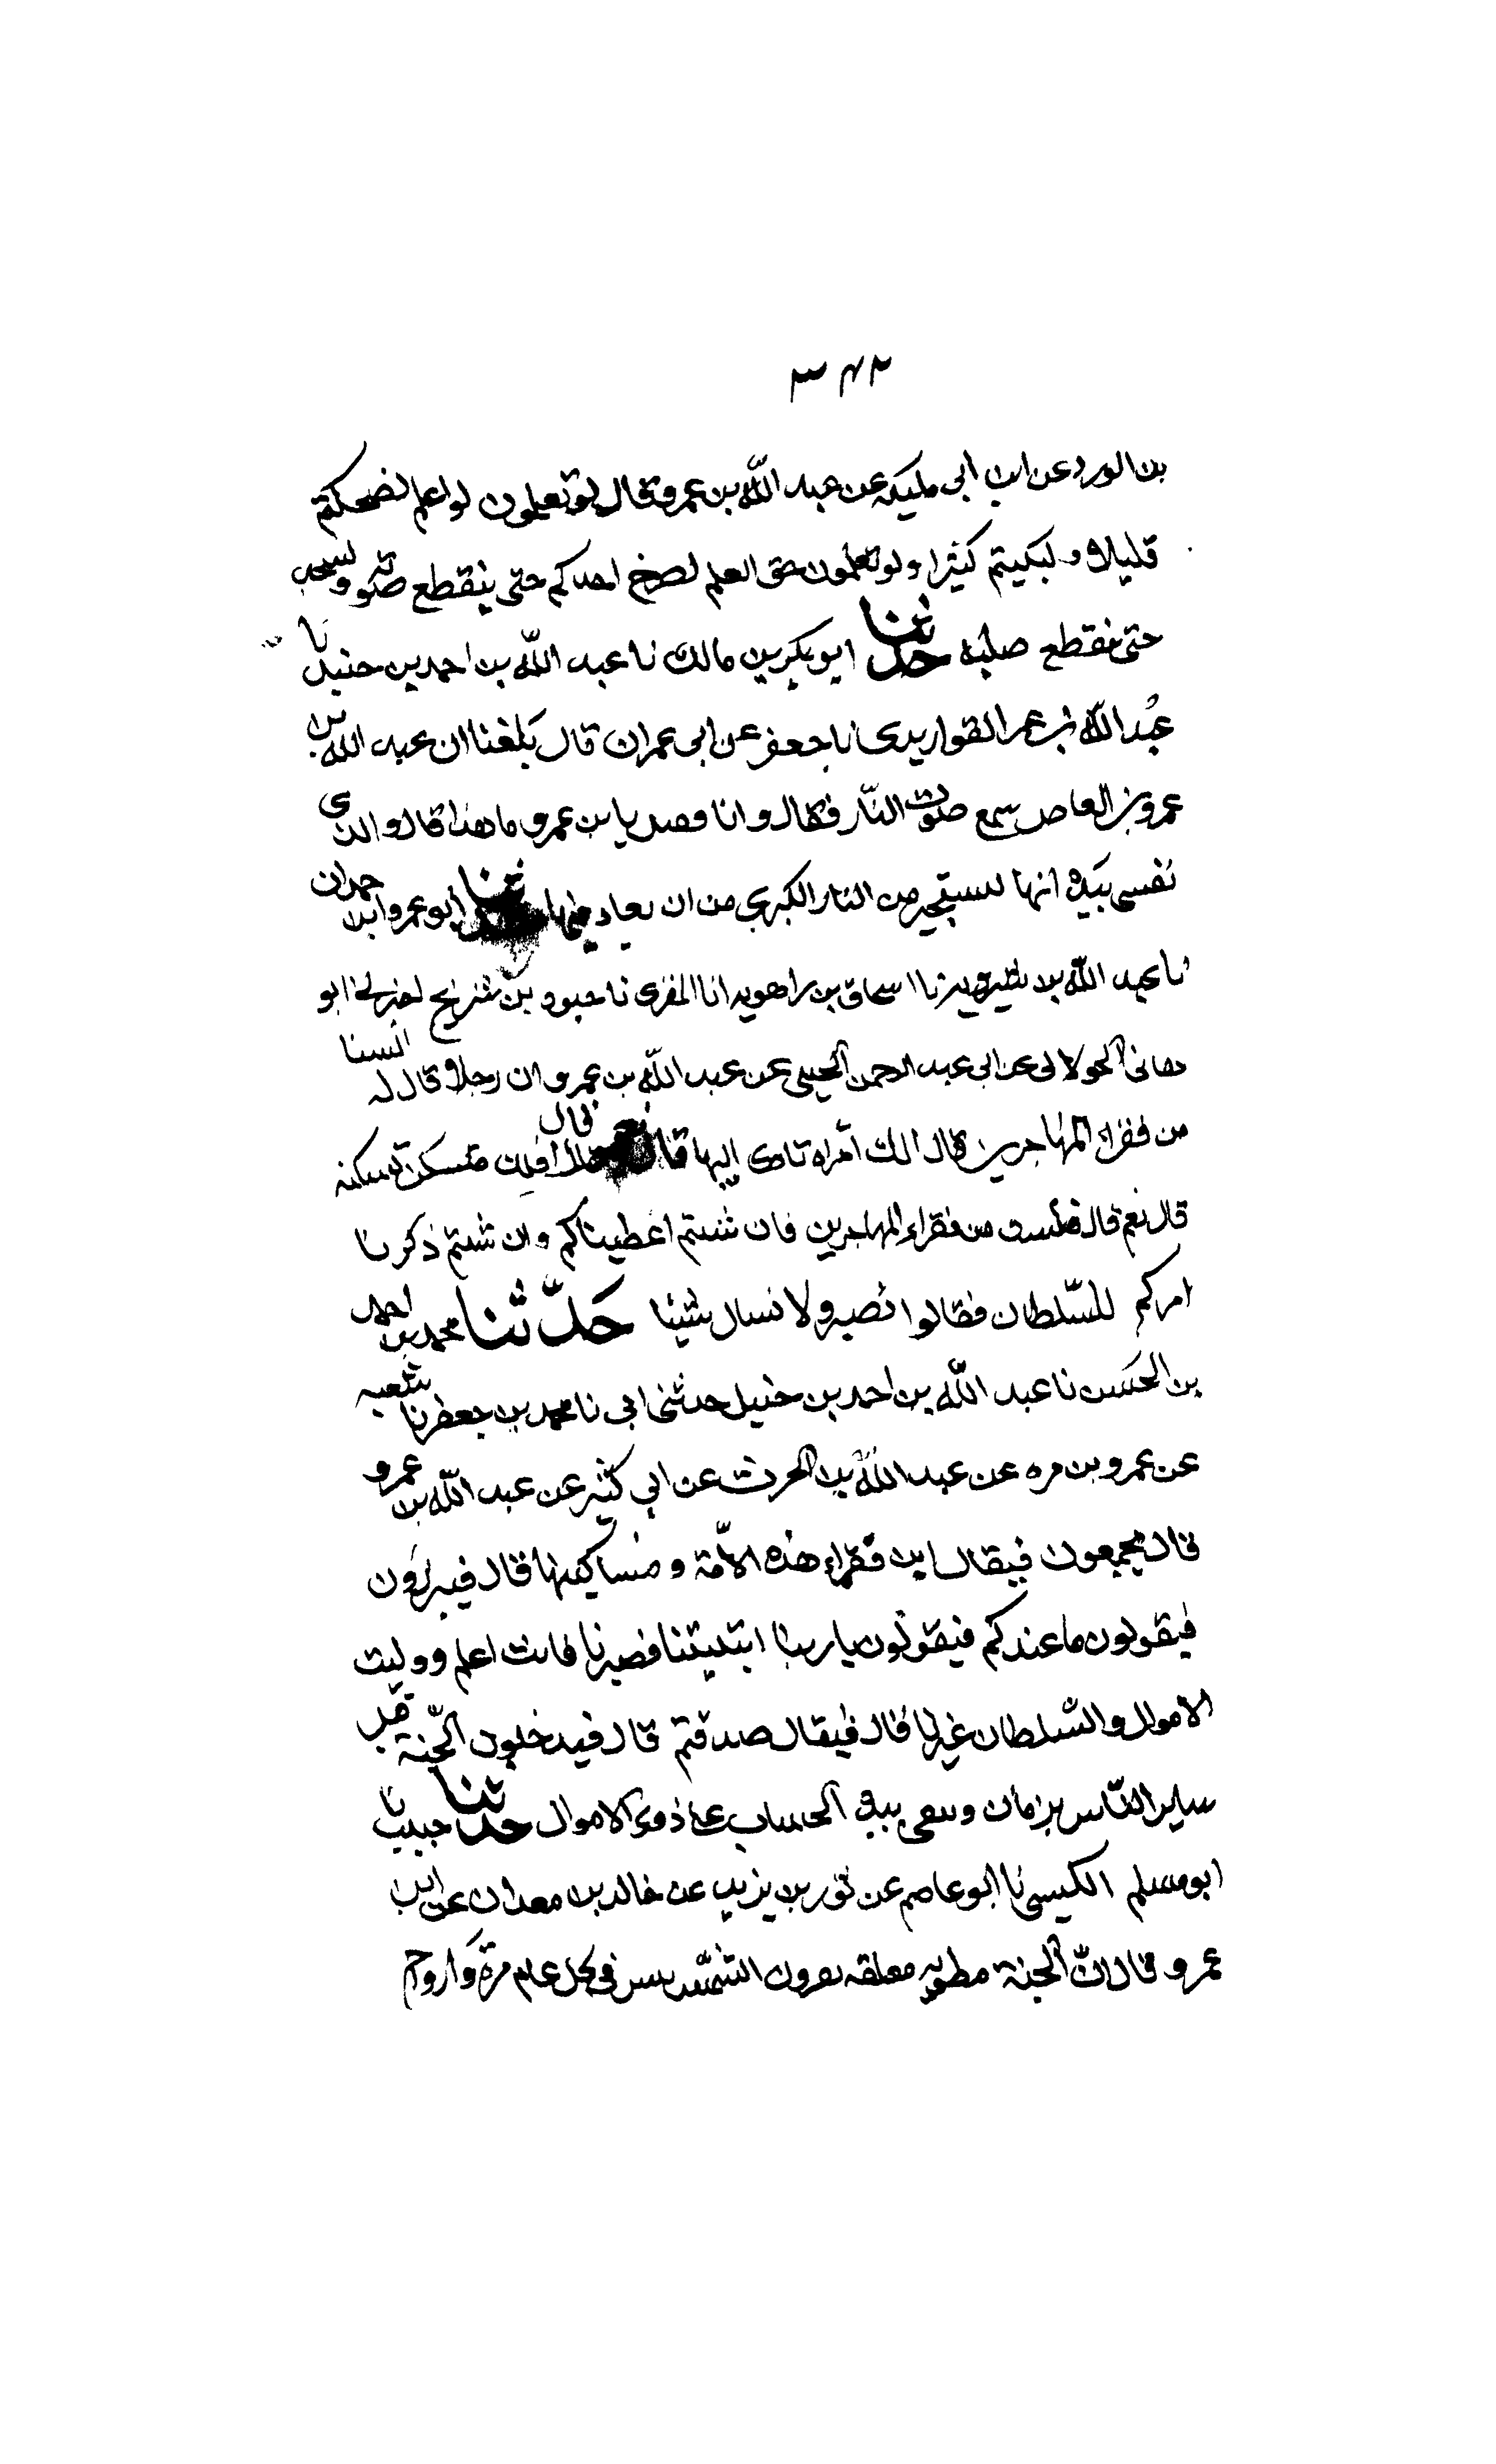 ٣٤٢
بن الورد عن ابن ابى مليكه عن عبد الله بن عمرو قال لو تعلمون لو اعلم لضحكتم
قليلا و لبكيتم كثيرا ولو تعلمون حق العلم لصرخ احدكم حتى ينقطع صوته ولسجد
حتى ينقطع صلبه حدثنا ابو بكر بن مالك نا عبد الله بن احمد بن حنبل نا
عبد الله بن عمر القواريرى نا جعفر عن ابى عمران قال بلغنا ان عبد الله بن
عمرو بن العاص سمع صوت النار فقال وانا فقيل يا بن عمرو ما هذا قال والذى
نفسى بيده انها لتستجير من النار الكبرى من ان يعاد فيها حدثنا ابو عمرو ابن حمدان
نا عبد الله بن شيرويه نا اسحاق بن راهويه انا المقرى نا حيوه بن شريح اخبرنى ابو
هانى الخولانى عن ابى عبد الرحمن الحبلى عن عبد الله بن عمرو ان رجلا قال له السنا
من فقراء المهاجرين قال الك امراه تاوى اليها قال نعم قال افلك مسكن تسكنه
قال نعم قال فلست من فقراء المهاجرين فان شئتم اعطيناكم وان شئتم ذكرنا
امركم للسّلطان فقالوا نصبر ولا نسال شيئا حَدّثنا محمد بن احمد
بن الحسن نا عبد الله بن احمد بن حنبل حدثنى ابى نا محمد بن جعفر نا شعبه
عن عمرو بن مره عن عبد الله بن الحرث عن ابى كثير عن عبد الله بن عمرو
قال يجمعون فيقال اين فقراء هذه الامّة و مساكينها قال فيبرزون
فيقولون ما عندكم فيقولون يا ربنا ابتليتنا فصبرنا فانت اعلم ووليت
الاموال والسّلطان غيرنا قال فيقال صدقتم قال فيدخلون الجنّة قبل
ساير النّاس بزمان وتبقى شده الحساب على ذوى الاموال حدثنا حبيب نا
ابو مسلم الكسى نا ابو عاصم عن ثور بن يزيد عن خالد بن معدان عن ابن
عمرو قال انّ الجنة مطويه معلقه بقرون الشّمس فى كل عام مرة وارواح